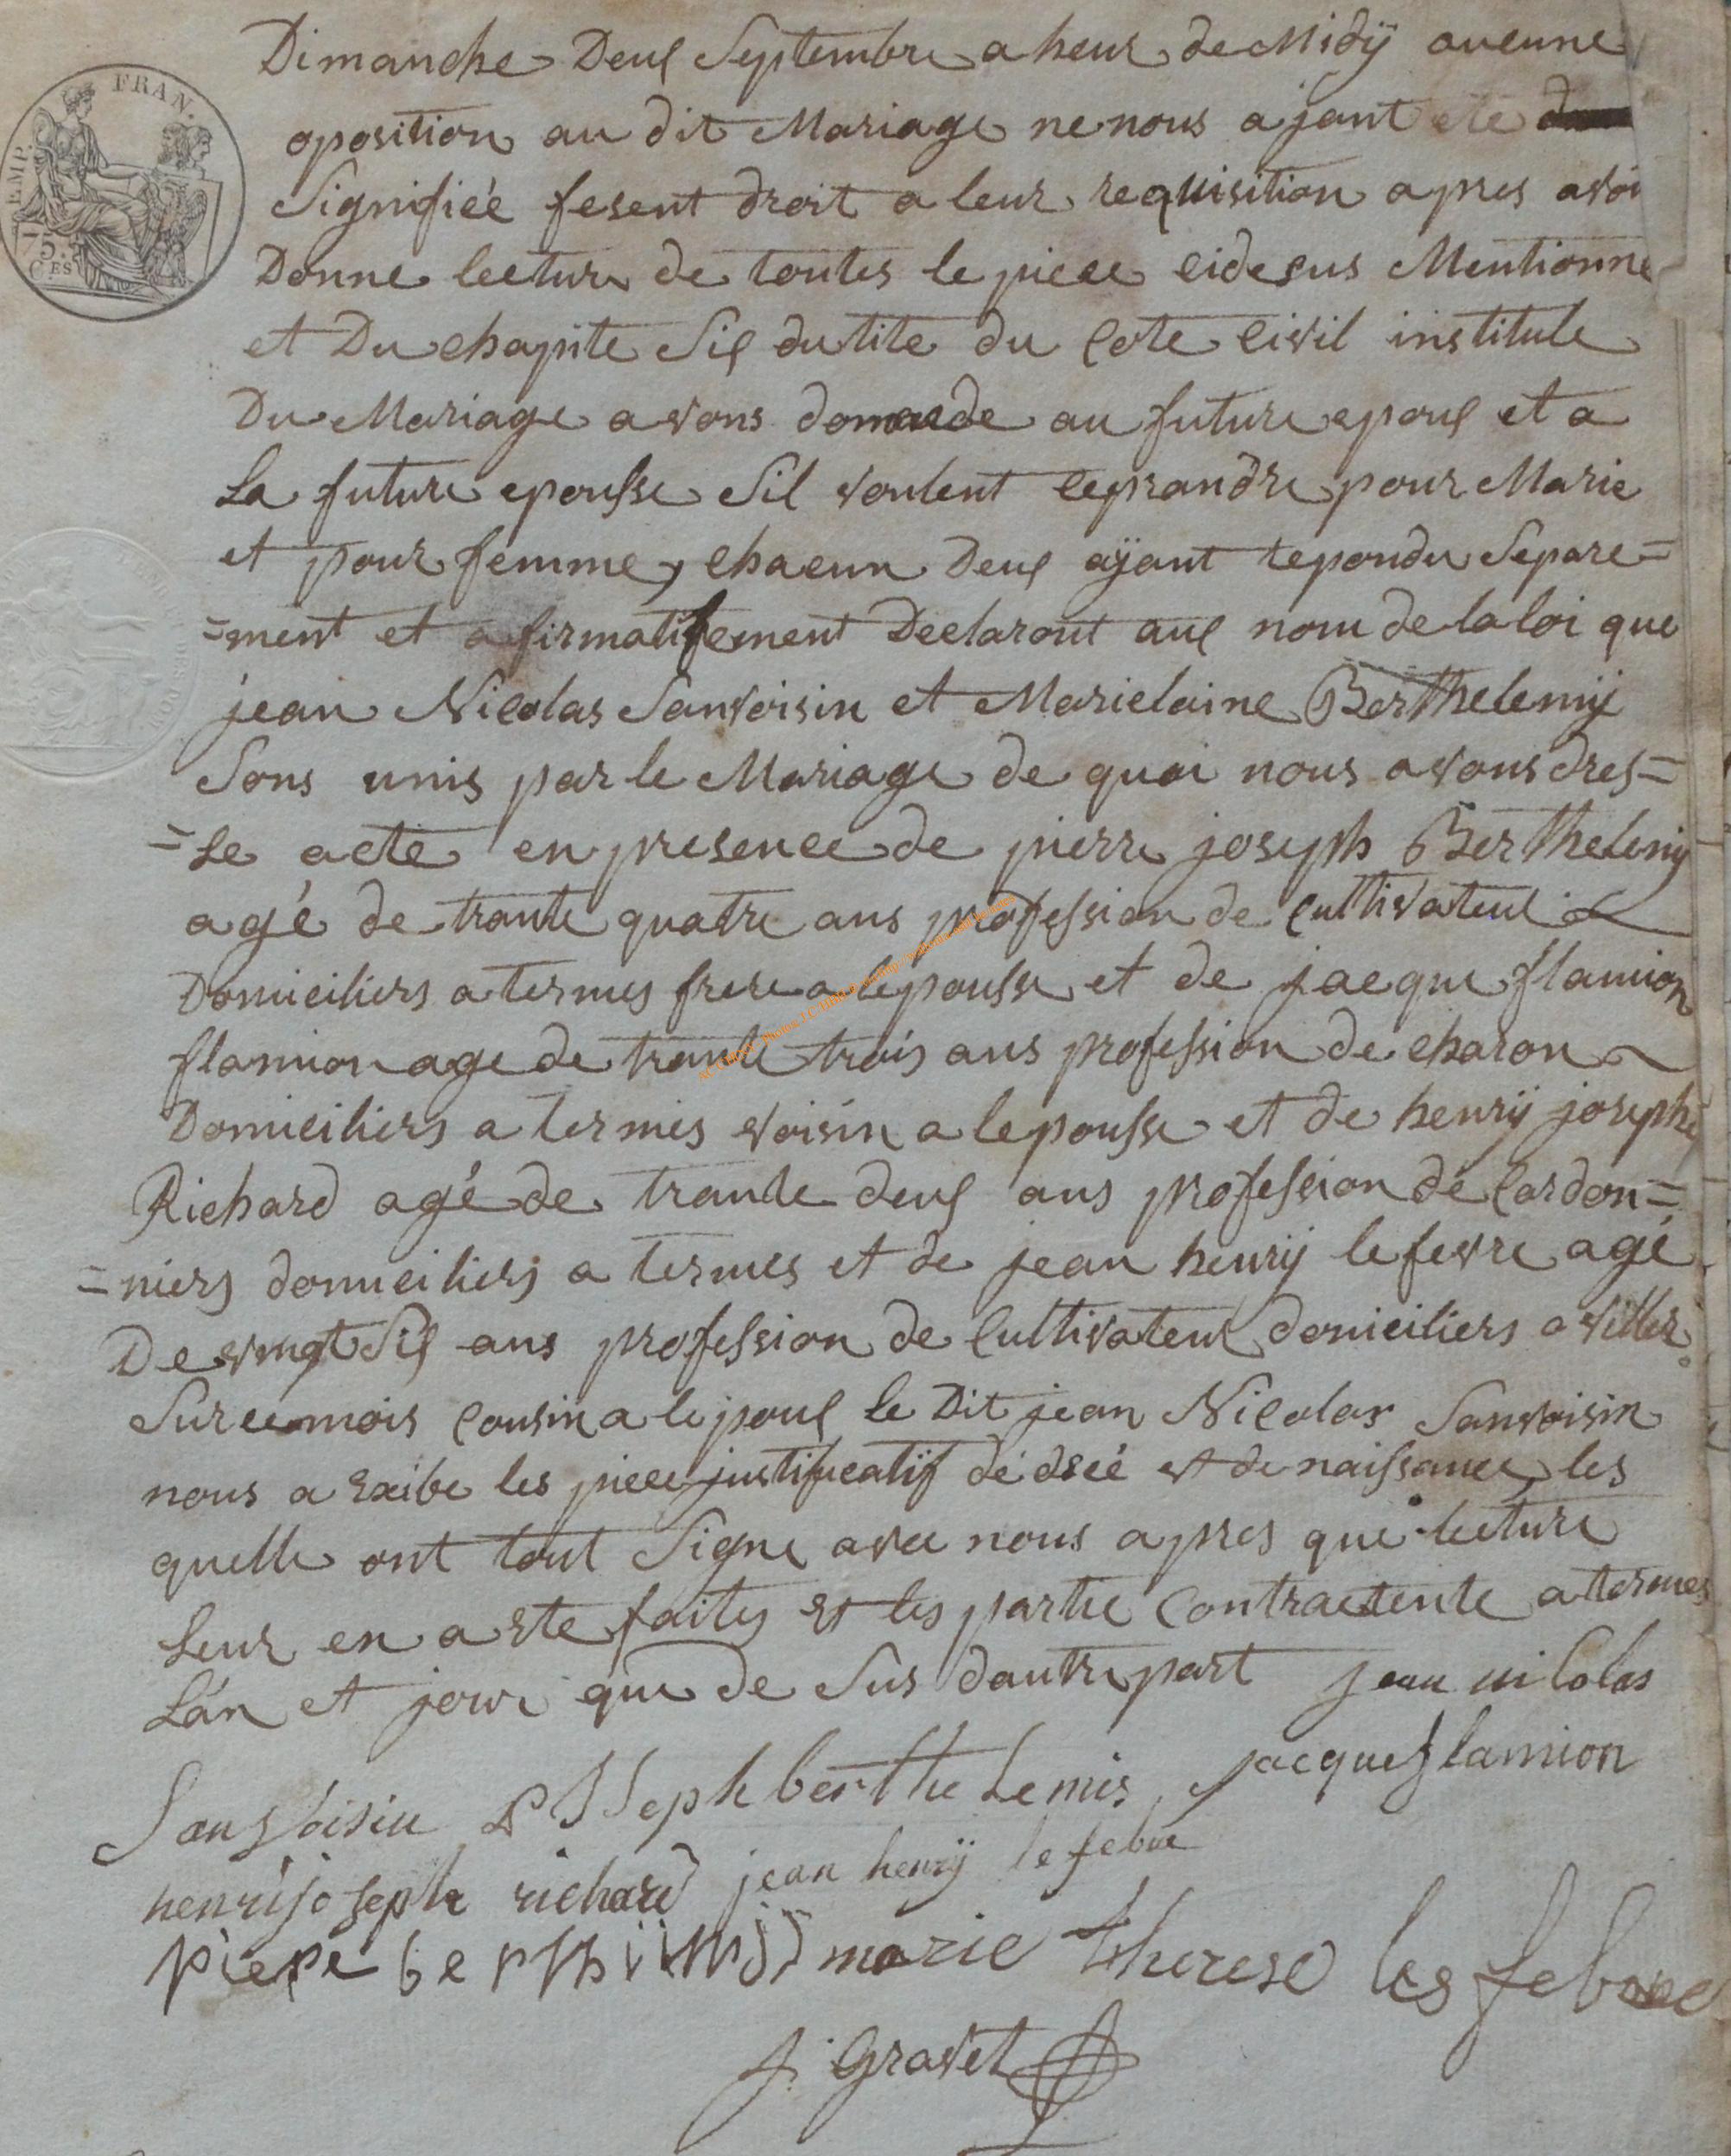 EMP. FRAN.
75.
C.ES
Dimanche Deux Septembre a heur de Midÿ aucune
oposition au dit Mariage ne nous ajant ete
Signifiéé fesent droit a leur requisition apres avoi
Donne lecture de toutes le piece cidesus Mentionne
et Du chapite Six du tite du Cote Civil institule
Du Mariage avons domande au future epoux et a
La future epousse Sil voulent ceprandre pour Marie
et pour femme, chacun Deux aÿant repondu Separe=
=ment et afirmatifement Declaront aux nom de la loi que
jean Nicolas Sanvoisin et Marielaine Berthelemÿ
Sons unis par le Mariage de quoi nous avons dres=
=Se acte en presence de pierre joseph Berthelemÿ
agé de trante quatre ans profession de Cultivateur
Domiciliers a termes frere a lepousse et de jacque flamion
flamion age de trante trois ans profession de charon
Domiciliers a termes voisin a lepousse et de henrÿ joseph
Richard agé de trante deux ans profession de Cordon=
=niers domiciliers a termes et de jean henrÿ lefevre agé
De vingt Six ans profession de Cultivateur domiciliers a viller
Sur Cemois Cousin a lepoux le Dit jean Nicolas Sanvoisin
nous a exibe les piece justificatif de et de naissance, les
quelle ont tout Signe avec nous apres que lecture
Leur en a ete faites et les partie Contractente a termes
Lán et jour que de Sus dautre part jean nicolas
Sanvoisin P JJseph berthelemis jacque flamion
henrij joseph richard jean henrÿ lefebve
piere marie therese les febvre
J. Gravet